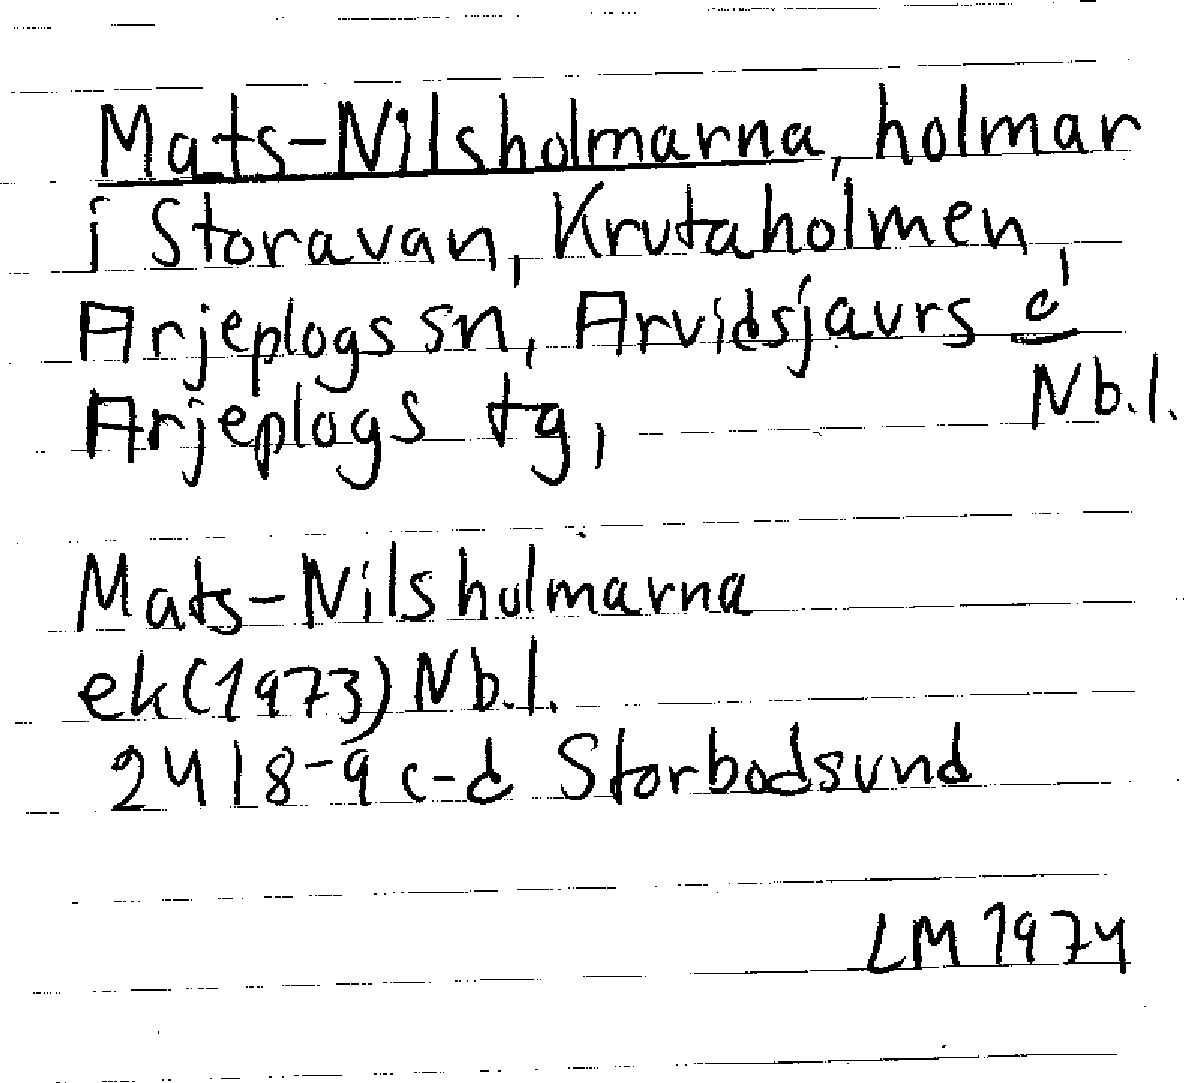 Mats-Nilsholmarna, holmar
i Storavan, Krutaholmen,
Arjeplogs sn, Arvidsjaurs o
Arjeplogs tg, Nb.l.
Mats-Nilsholmarna
ek(1973) Nb.l.
24I8-9c-d Storbodsund
LM 1974